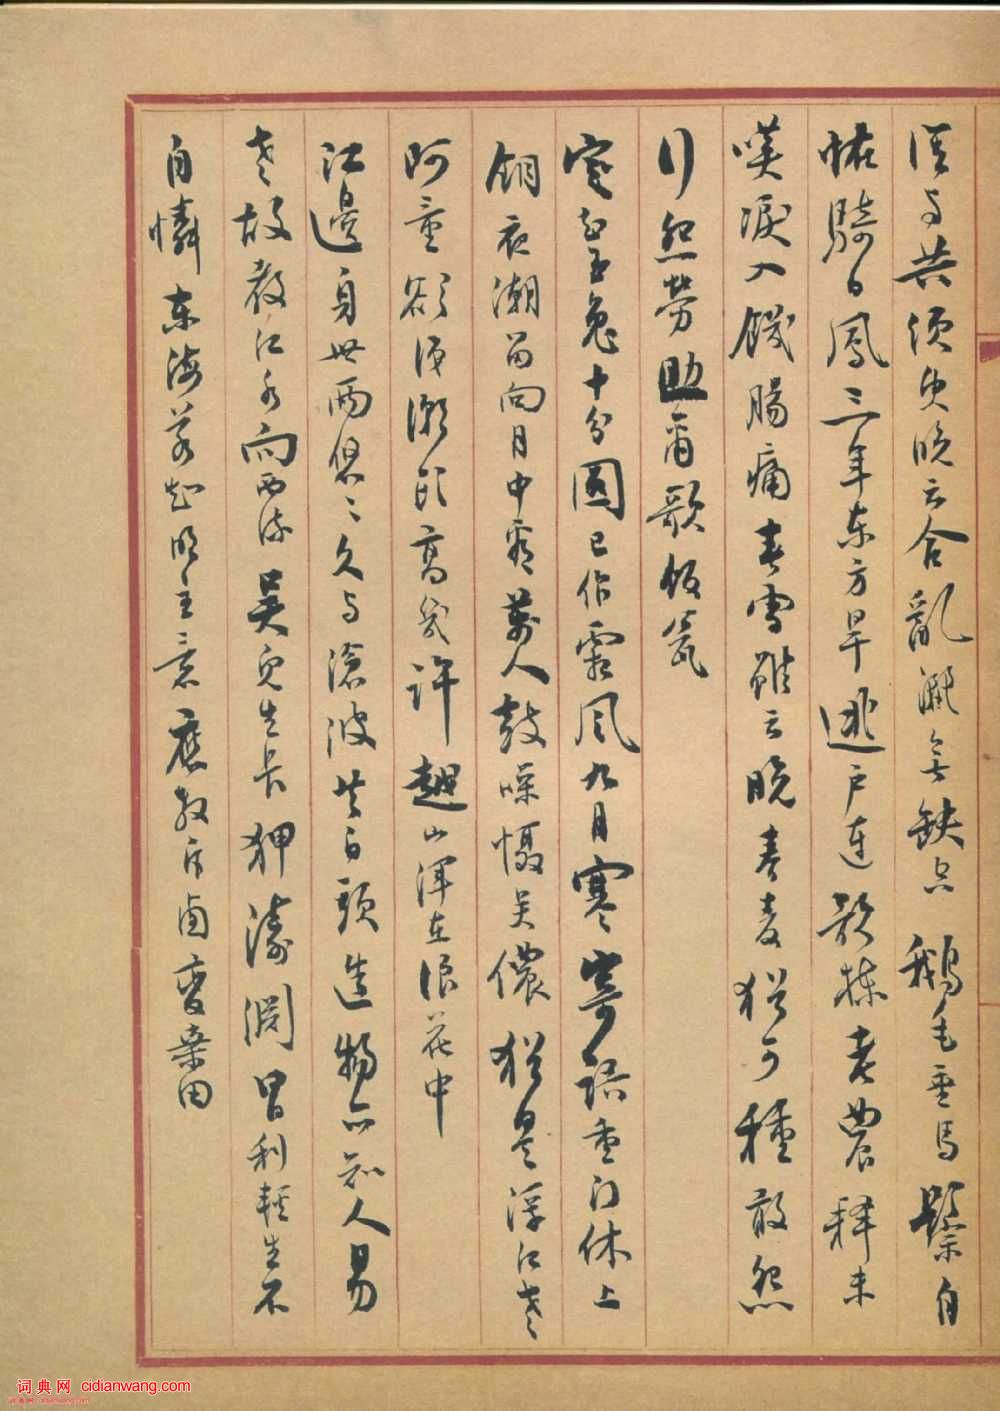 须臾晚云合乱洒无缺空鹅毛垂马鬃自
怪骑白凤三年东方旱逃户连欹栋老农释耒
叹泪入饥肠痛春雪虽云晚春麦犹可种敢怨
行役劳助尔歌饭瓮
定知玉兔十分圆已作霜风九月寒寄语重门休上
钥夜潮留向月中看万人鼓噪慑吴侬犹是浮江老
阿童欲识潮头高几许越山浑在浪花中
江邊身世两悠々久与滄波共白頭造物亦知人易
老故教江水向西流吴兒生长狎濤渊冒利輕生不
自憐东海若知明主意應教斥卤變桑田
词典网 cidianwang.com
词典网 cidianwang.com